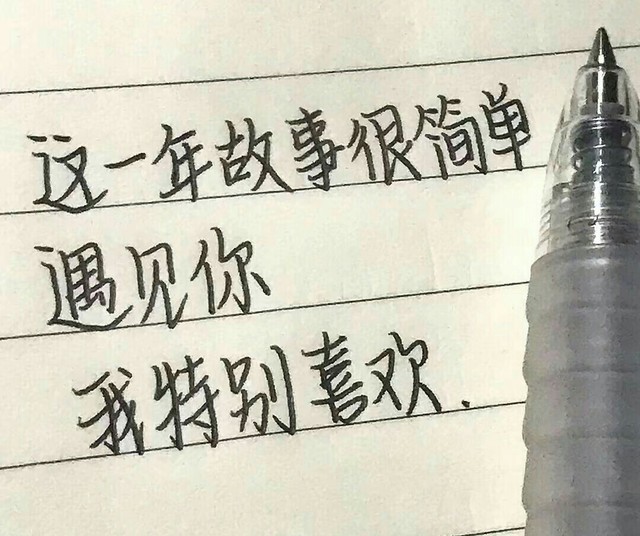 这一年故事很简单
遇见你
我特别喜欢.